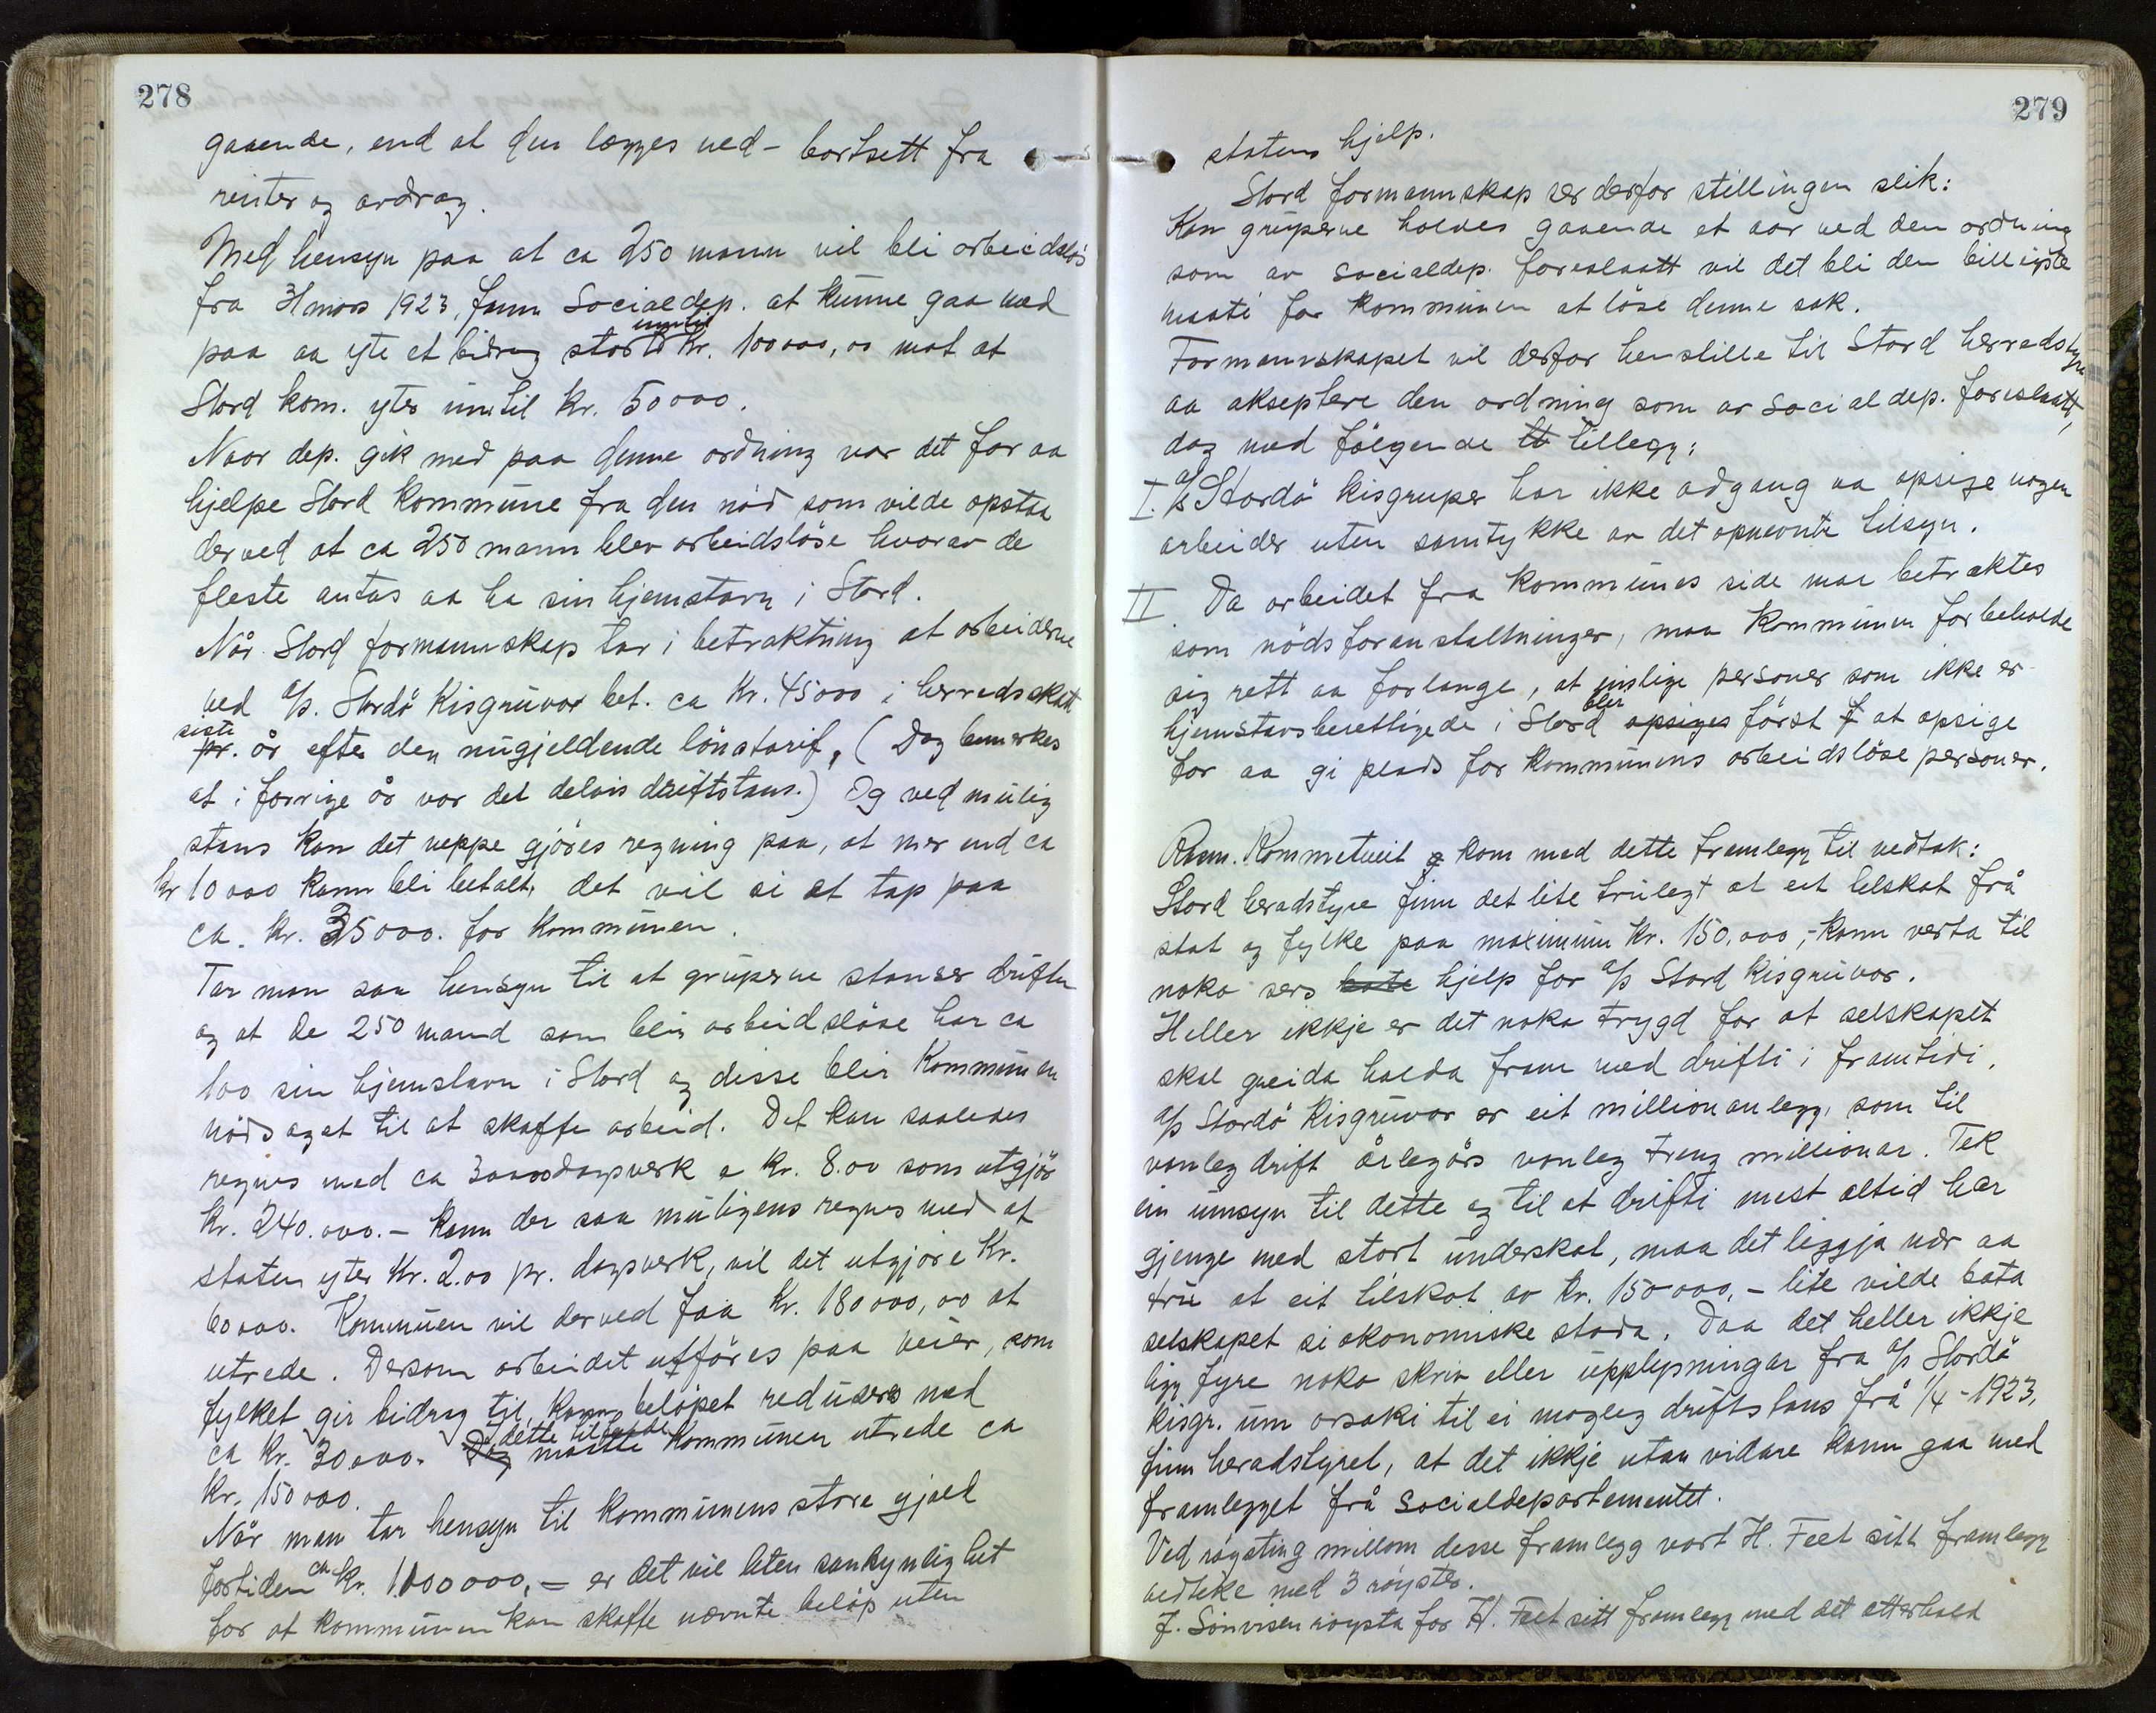 278
gaaende, end at den lægges ned - bortsett fra
renter og avdrag.
Med hensyn paa at ca 250 mann vil bli arbeidsløs
fra 31 mars 1923, fann Socialdep. at kunne gaa med
paa aa yte et bidrag stort inntil kr. 100000,00 mot at
Stord kom. yter inntil kr. 50000.
Naar dep. gik med paa denne ordning var det for aa
hjelpe Stord kommune fra den nöd som vilde opstaa
derved at ca 250 mann blev arbeidslöse hvorav de
fleste antas aa ha sin hjemstavn i Stord.
Når Stord formannskap tar i betraktning at arbeiderne
ved A/S. Stordö Kisgruvor bet. ca kr. 45000 i herredsskatt
siste pr. år efter den nugjeldende lönstarif, (Dog bemerkes
at i forrige år var det delvis driftstans.) Og ved mulig
stans kan det neppe gjöres regning paa, at mer end ca
kr 10000 kann bli betalt, det vil si et tap paa
ca. kr. 35000. for kommunen.
Tar man saa hensyn til at gruperne stanser driften
og at de 250 mand som blir arbeidslöse har ca
100 sin hjemstavn i Stord og disse blir kommunen
nödsaget til at skaffe arbeid. Det kan saaledes
regnes med ca 30000 dagsverk a kr. 8.00 som utgjör
kr. 240.000.- kann der saa muligens regnes med at
staten yter kr. 2.00 pr. dagsverk, vil det utgjöre kr.
60000. Kommunen vil derved faa kr. 180000,00 at
utrede. Dersom arbeidet utföres paa veier, som
fylket gir bidrag til, kann belöpet reduseres med
ca kr. 30000. Dog I dette tilfælde maatte kommunen utrede ca
kr. 150000.
Når man tar hensyn til kommunens store gjæld
fortiden ca kr. 1100000,- er det vil liten sansynlighet
for at kommunen kan skaffe nævnte belöp uten
279
statens hjelp.
Stord formannskap ser derfor stillingen slik:
Kan gruperne holdes gaaende et aar ved den ordning
som av Socialdep. foreslaatt vil det bli den billigste
maate for kommunen at löse denne sak.
Formannskapet vil derfor henstille til Stord herredstyre
aa akseptere den ordning som av Socialdep. foreslaatt,
dog med fölgende tillegg:
I. A/S Stordö kisgruper har ikke adgang aa opsige nogen
arbeider uten samtykke av det opnevnte tilsyn.
II Da arbeidet fra kommunes side maa betraktes
som nödsforanstaltninger, maa kommunen forbeholde
sig rett aa forlange, at enslige personer som ikke er
hjemstavsberettigede i Stord opsiges blir först f at opsige
for aa gi plads for kommunens arbeidslöse personer.
Rasm. Rommetveit g kom med dette framlegg til vedtak:
Stord heradstyre finn det lite trulegt at eit tilskot frå
stat og fylke paa maximum kr. 150,000,- kann verta til
noko sers bate hjelp for A/S Stord kisgruvor.
Heller ikkje er det noko trygd for at selskapet
skal greida halda fram med drifti i framtidi.
A/S Stordö kisgruvor er eit millionanlegg, som til
vanleg drift årlegårs vanleg treng millionar. Tek
ein umsyn til dette og til at drifti mest altid har
gjenge med stort underskot, maa det liggja nær aa
tru at eit tilskot av kr. 150000,- lite vilde bata
selskapet si økonomiske stoda. Daa det heller ikkje
ligg fyre noko skriv eller upplysningar fra A/S Stordö
kisgr. um orsaki til ei mogleg driftstans frå 1/4-1923,
finn heradstyret, at det ikkje utan vidare kann gaa med
framlegget frå Socialdepartementet.
Ved røysting millom desse framlegg vart H. Feet sitt framlegg
vedteke med 3 røyster.
J. Sönvisen røysta for H. Feet sitt framlegg med det atterhald